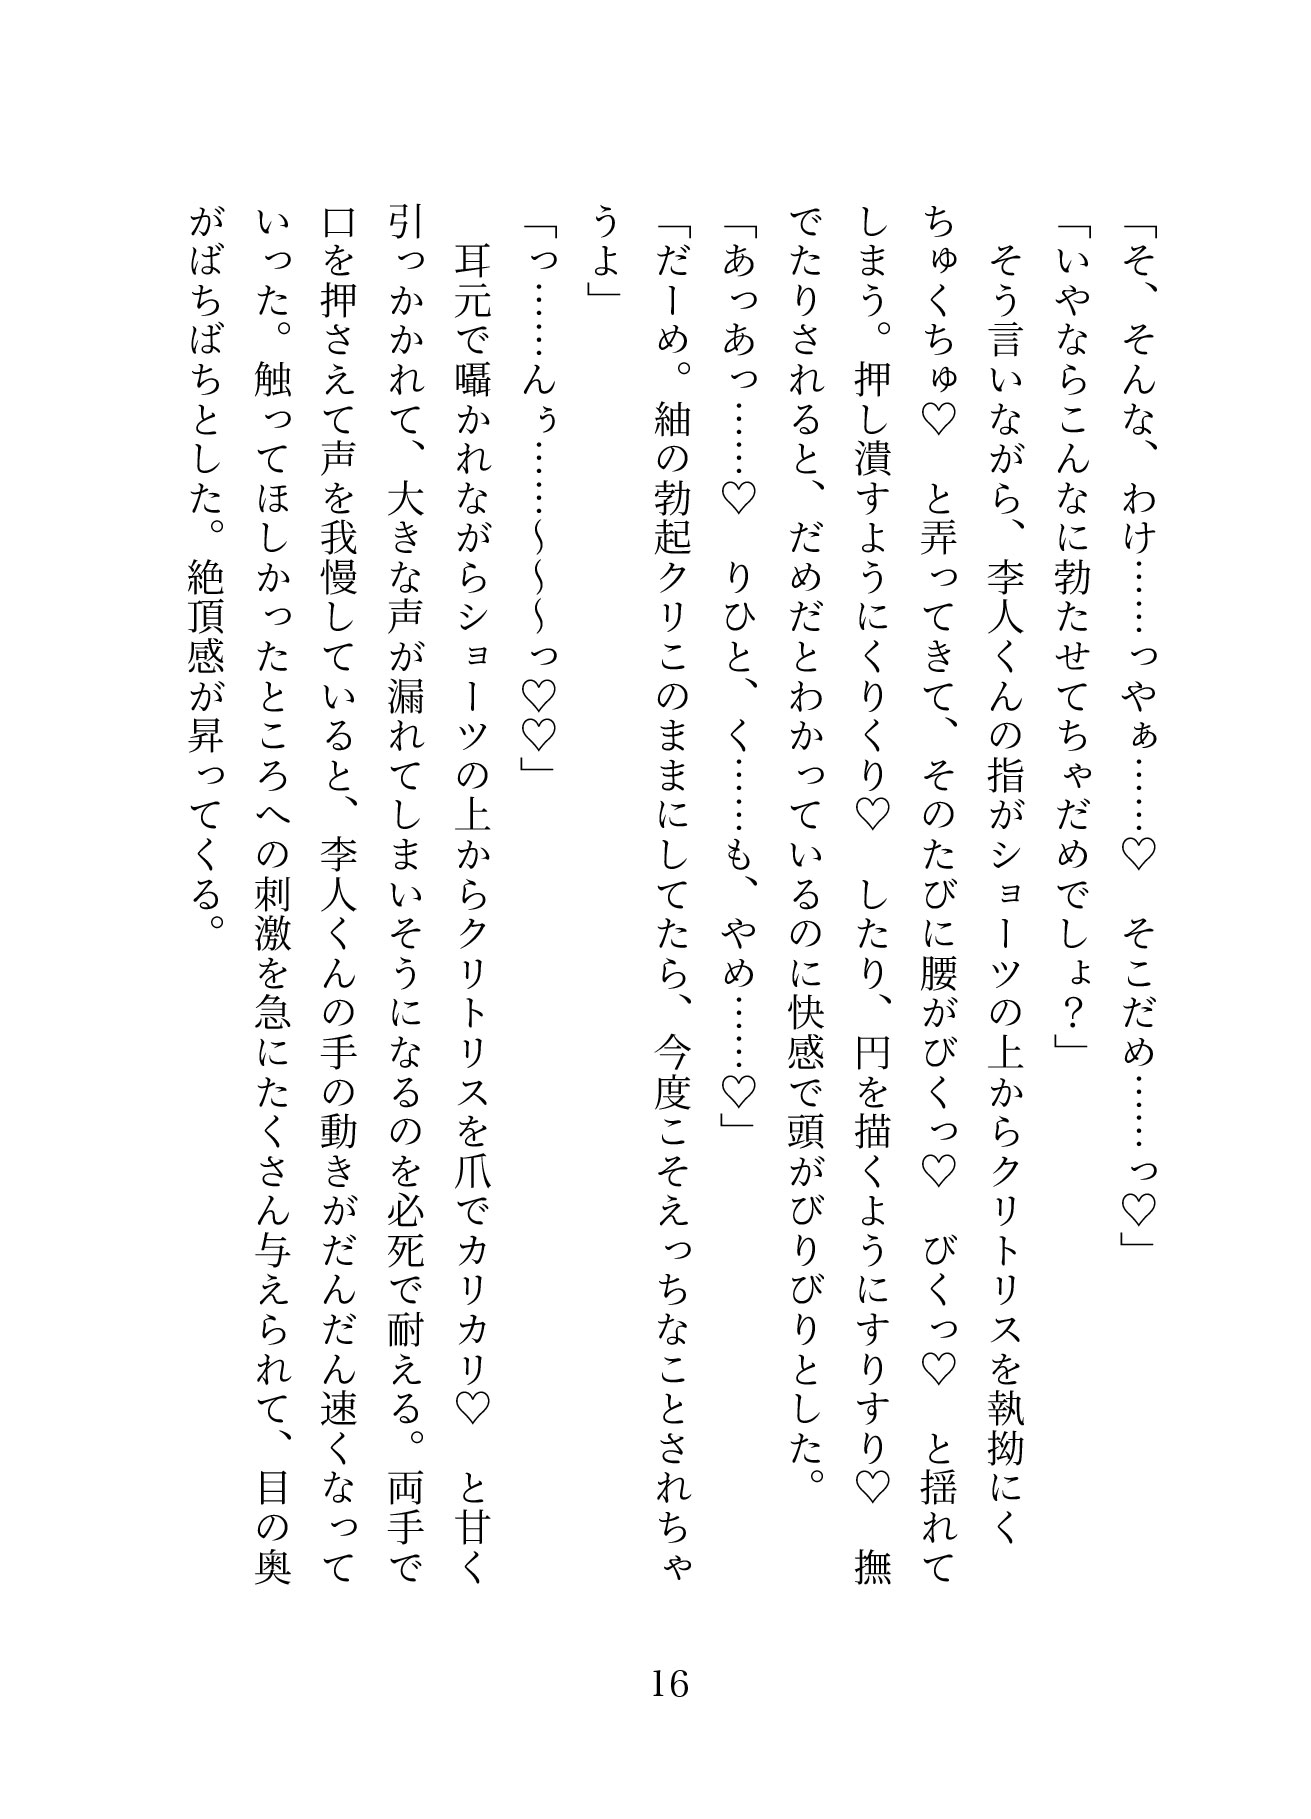 「そ、そんな、わけ……っやぁ……♡　そこだめ……っ♡」
「いやならこんなに勃たせてちゃだめでしょ？」
　そう言いながら、李人くんの指がショーツの上からクリトリスを執拗にく
ちゅくちゅ♡　と弄ってきて、そのたびに腰がびくっ♡　びくっ♡　と揺れて
しまう。押し潰すようにくりくり♡　したり、円を描くようにすりすり♡　撫
でたりされると、だめだとわかっているのに快感で頭がびりびりとした。
「あっあっ……♡　りひと、く……も、やめ……♡」
「だーめ。紬の勃起クリこのままにしてたら、今度こそえっちなことされちゃ
うよ」
「っ……んぅ……～～～っ♡♡」
　耳元で囁かれながらショーツの上からクリトリスを爪でカリカリ♡　と甘く
引っかかれて、大きな声が漏れてしまいそうになるのを必死で耐える。両手で
口を押さえて声を我慢していると、李人くんの手の動きがだんだん速くなって
いった。触ってほしかったところへの刺激を急にたくさん与えられて、目の奥
がばちばちとした。絶頂感が昇ってくる。
16